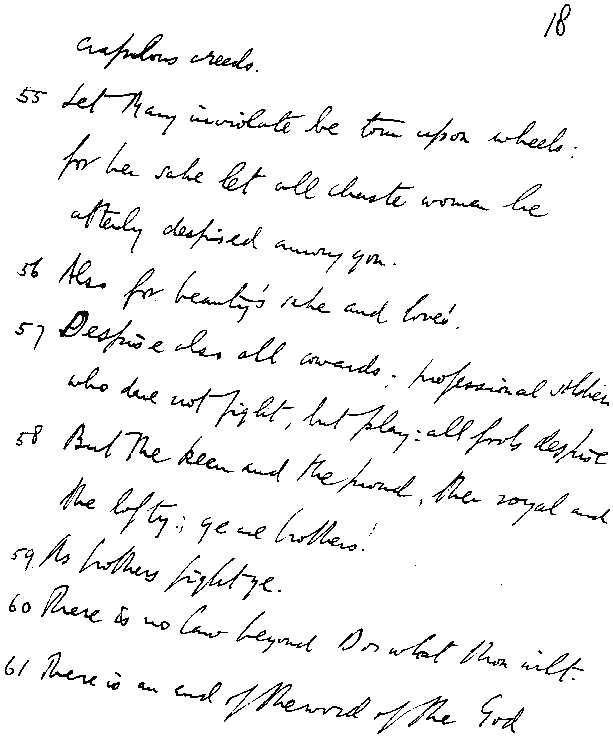 18
crapulous creeds.
55 Let Mary inviolate be torn upon wheels:
for her sake let all chaste women be
utterly despised among you.
56 Also for beauty's sake and love's.
57 Despise also all cowards; professional soldiers
who dare not fight, but play: all fools despise
58 But the keen and the proud, the royal and
the lofty; ye are brothers!
59 As brothers fight ye.
60 There is no law beyond Do what thou wilt.
61 There is an end of the word of the God